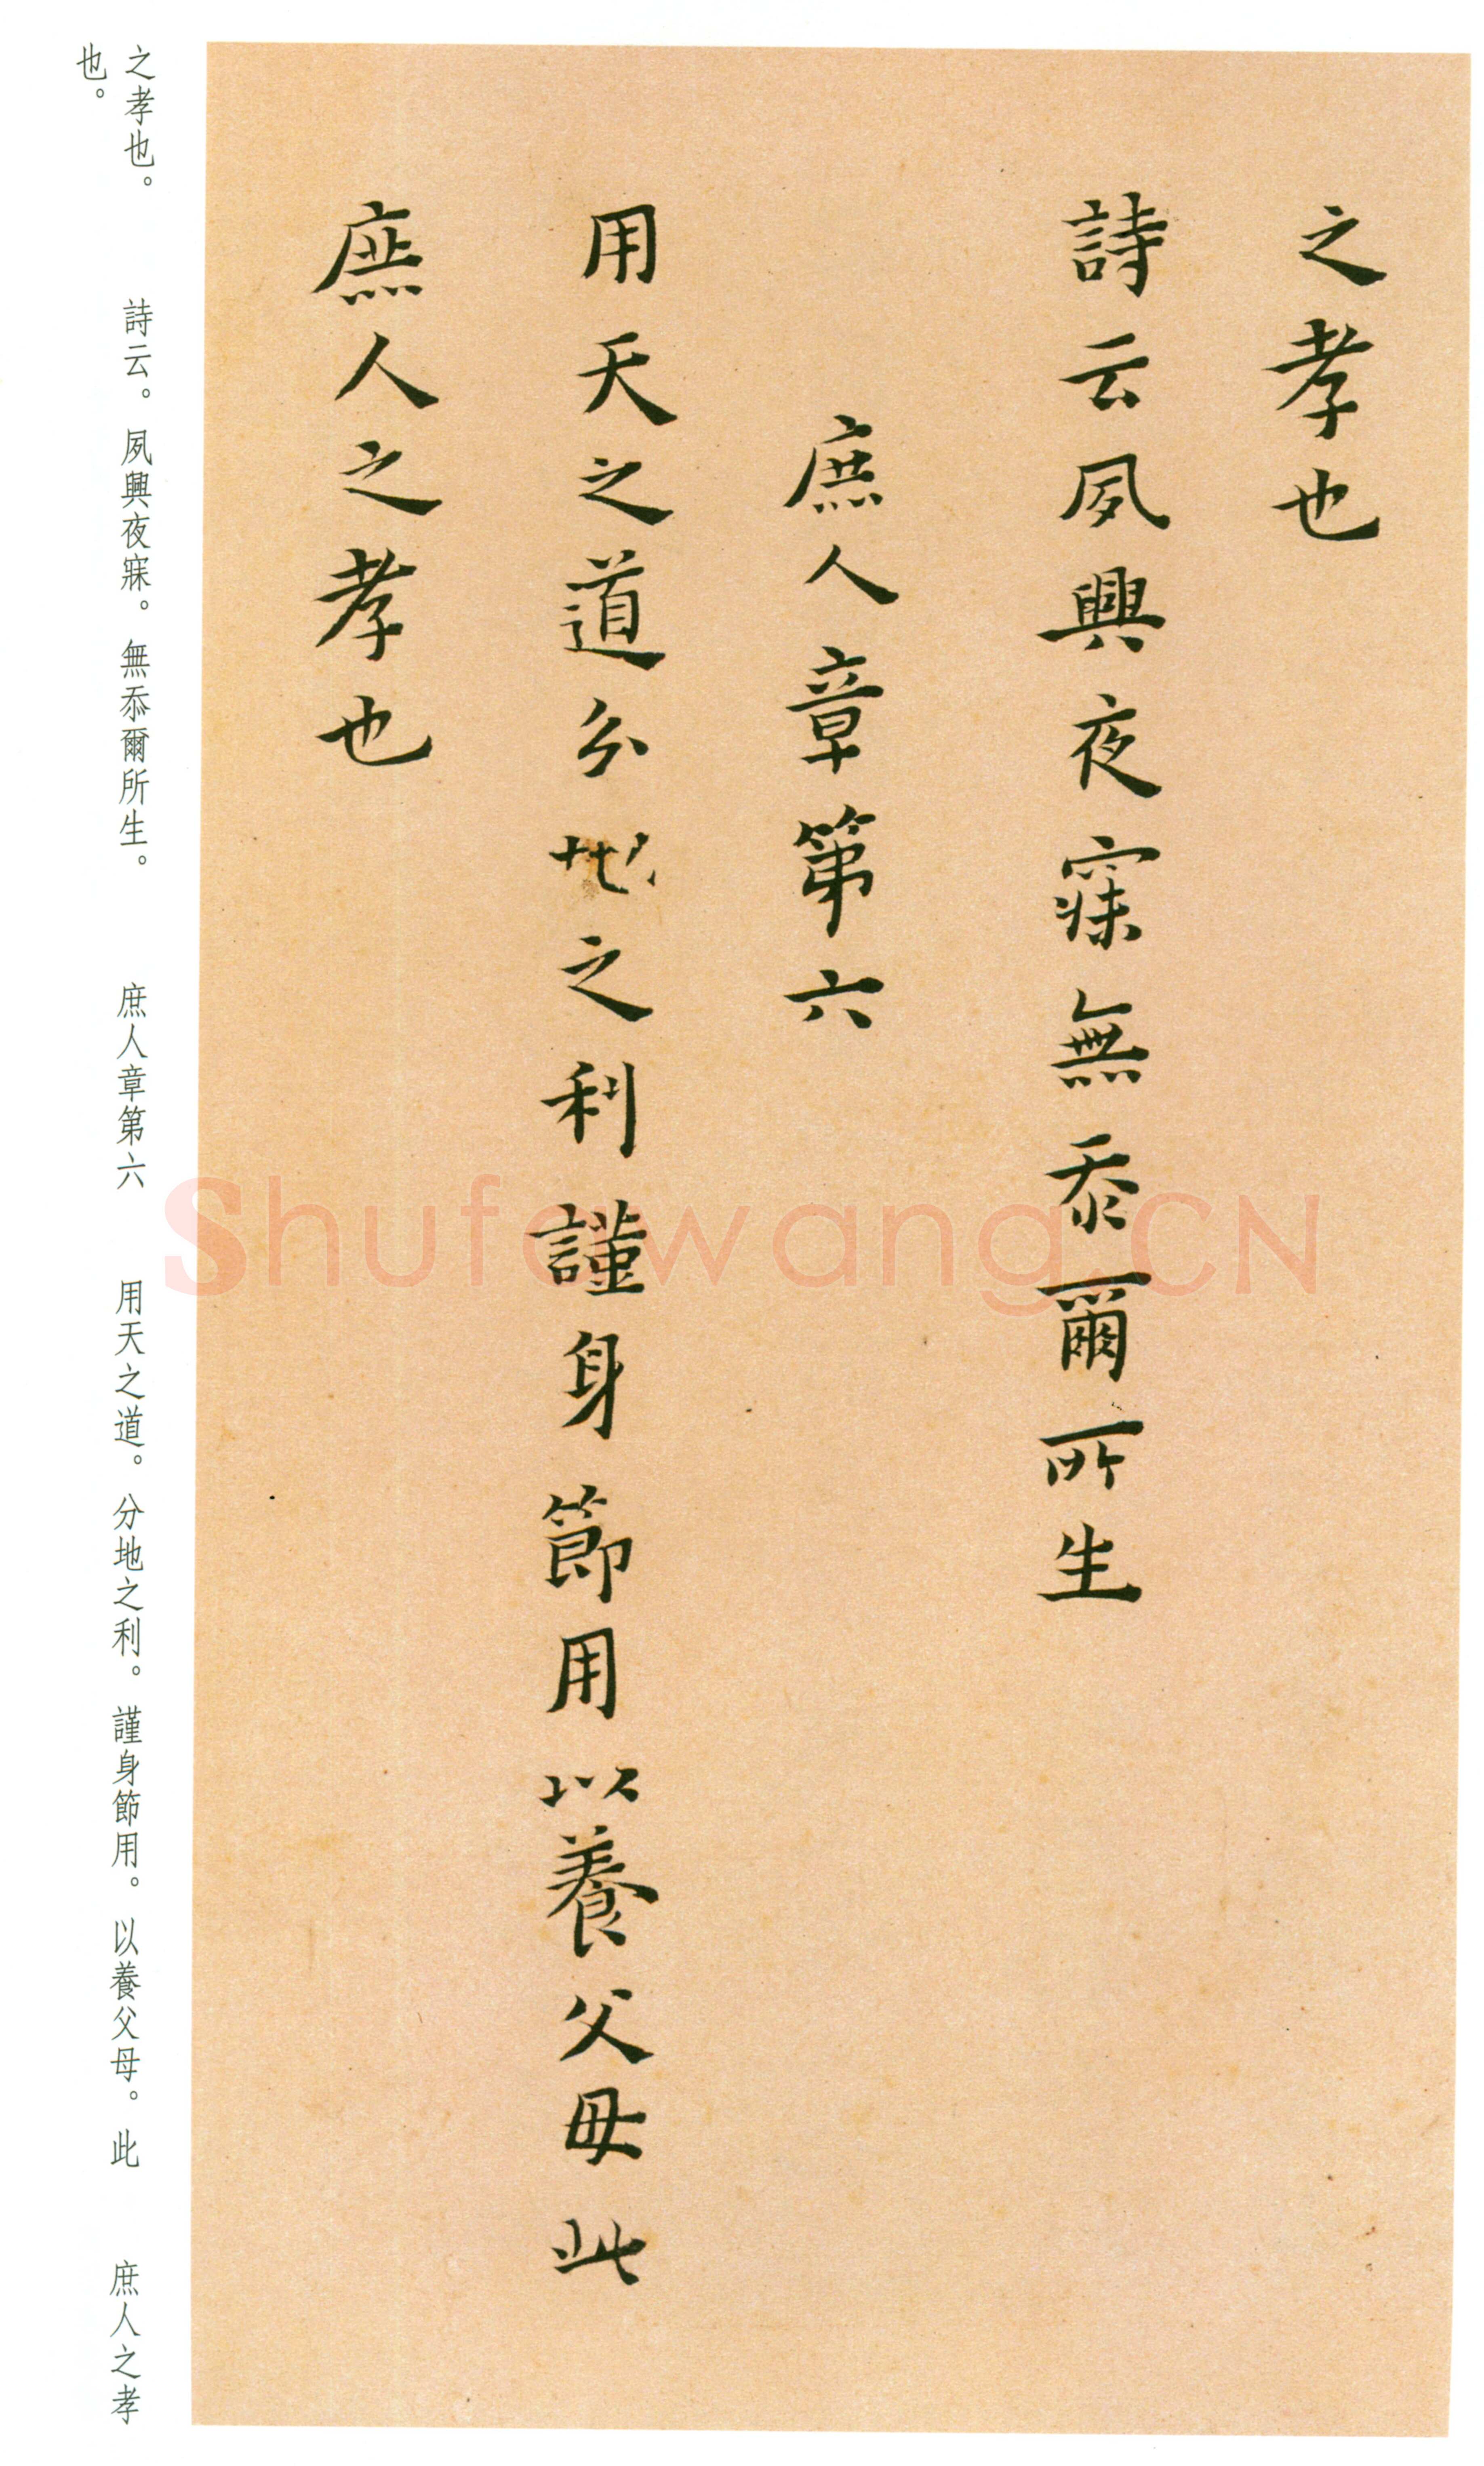 之孝也
詩云夙興夜寐無忝爾所生
庶人章第六
用天之道分地之利謹身節用以養父母此
庶人之孝也
之孝也。 詩云。夙興夜寐。無忝爾所生。 庶人章第六 用天之道。分地之利。謹身節用。以養父母。此 庶人之孝
也。
Shufawang.CN